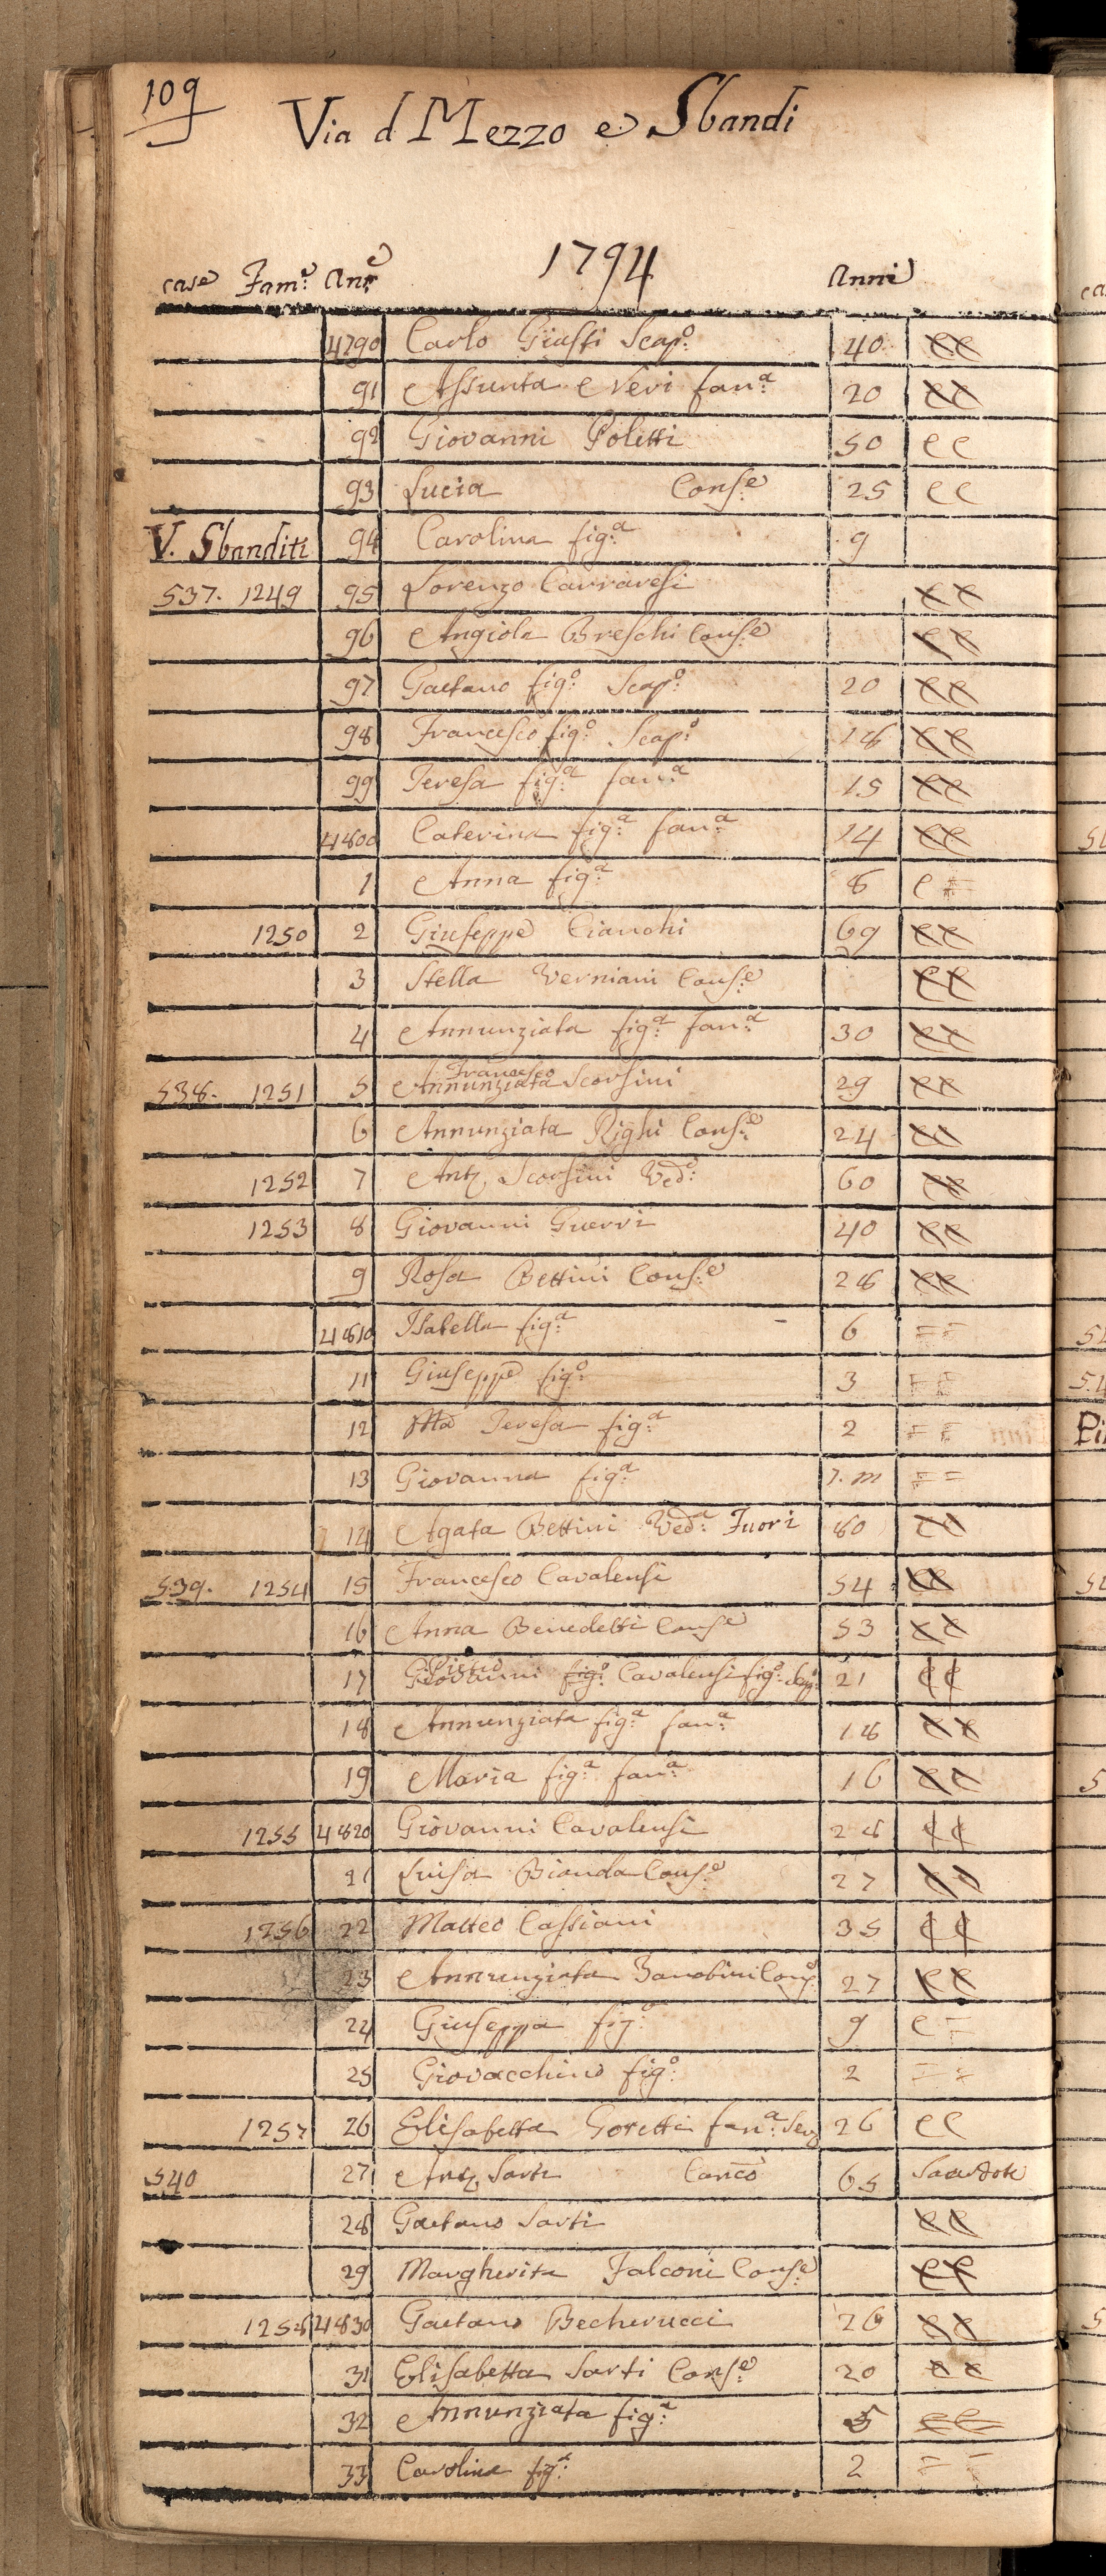 109
Via d Mezzo e Sbandi
1794
case Fam.ᵉ An.ᵉ Anni
4790 Carlo Giusti Scap.º 40 ee
91 Assunta Nevi fan.ª 20 ee
92 Giovanni Poletti 50 ee
93 Lucia Cons.ᵉ 25 ee
V. Sbanditi 94 Carolina fig.ª 9
537. 1249 95 Lorenzo Carraresi ee
96 Angiola Breschi Cons.ᵉ ee
97 Gaetano fig.º Scap.º 20 ee
98 Francesco fig.º Scap.º 18 ee
99 Teresa fig.ª fan.ª 15 ee
4800 Caterina fig.ª fan.ª 14 ee
1 Anna fig.ª 8 e =
1250 2 Giuseppe Cianchi 69 ee
3 Stella Verniani Cons.ᵉ ee
4 Annunziata fig.ª fan.ª 30 ee
Francesco
538. 1251 5 Annunziata Scorsini 29 ee
6 Annunziata Righi Cons.ᵉ 24 ee
1252 7 Ant. Scorsini Ved.º 60 ee
1253 8 Giovanni Guerri 40 ee
9 Rosa Bettini Cons.ᵉ 28 ee
4810 Isabella fig.ª 6 = =
11 Giuseppe fig.º 3 = =
12 Mª Teresa fig.ª 2 = =
13 Giovanna fig.ª 7. m = =
14 Agata Bettini Ved.ª Fuori 80 ee
539. 1254 15 Francesco Cavalensi 54 ee
16 Anna Benedetti Cons.ᵉ 53 ee
Pietro
17 Giovanni fig.º Cavalensi fig.º Scap.º 21 ee
18 Annunziata fig.ª fan.ª 18 ee
19 Maria fig.ª fan.ª 16 ee
1255 4820 Giovanni Cavalensi 28 ee
21 Luisa Bianda Cons.ᵉ 27 ee
1256 22 Matteo Cassiani 35 ee
23 Annunziata Zanobini Cons.ᵉ 27 ee
24 Giuseppa fig.ª 9 e =
25 Giovacchino fig.º 2 = =
1257 26 Elisabetta Goretti fan.ª Serv 26 ee
540 27 Ant. Sarti Canco 65 Sacerdote
28 Gaetano Sarti ee
29 Margherita Falconi Cons.ᵉ ee
1258 4830 Gaetano Becherucci 26 ee
31 Elisabetta Sarti Cons.ᵉ 20 ee
32 Annunziata fig.ª 5 ee
33 Carolina fig.ª 2 = =